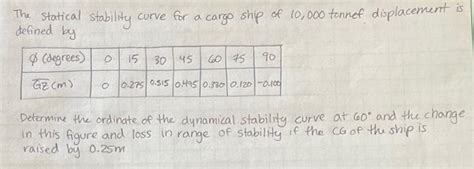 The statical stability curve for a cargo ship of 10,000 tonnef displacement is
defined by
φ (degrees) 0 15 30 45 60 75 90
GZ (m) 0 0.275 0.515 0.495 0.330 0.120 -0.100
Determine the ordinate of the dynamical stability curve at 60° and the change
in this figure and loss in range of stability if the CG of the ship is
raised by 0.25m